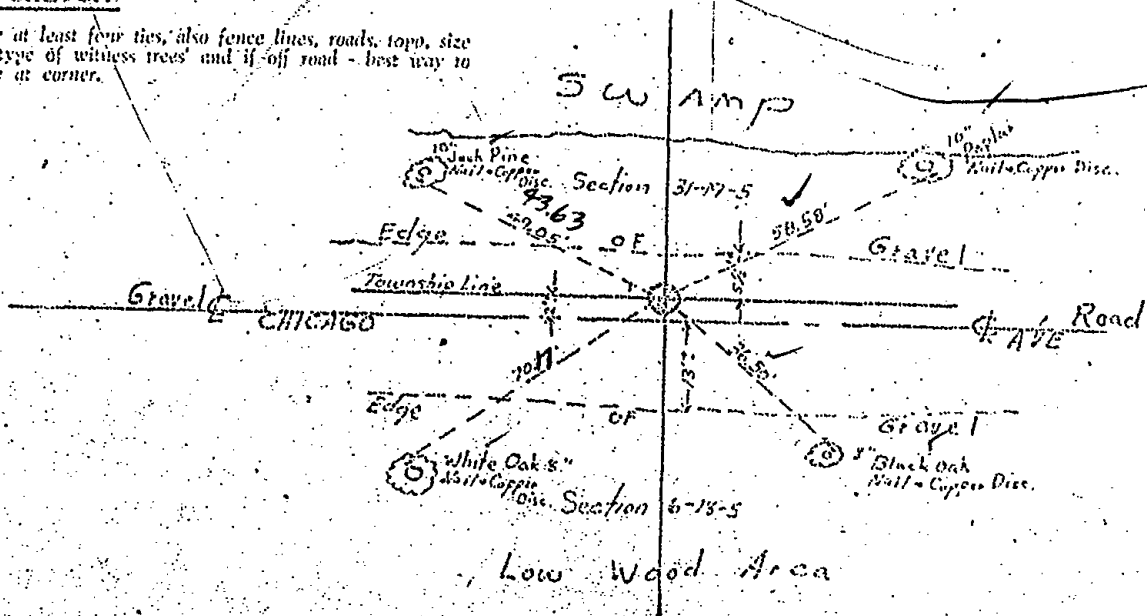 at least four ties, also fence lines, roads, topo, size
type of witness trees and if off road - best way to
at corner.
SWAMP
10"
Jack Pine
Nail & Copper
Disc.
10"
Poplar
Nail & Copper Disc.
Section 31-17-5
43.63
58.58'
Edge OF Gravel
Township Line
Gravel ℄ CHICAGO ℄ AVE Road
13'
Edge OF Gravel
White Oak 8"
Nail & Copper
Disc.
8"
Black Oak
Nail & Copper Disc.
Section 6-18-5
Low Wood Area